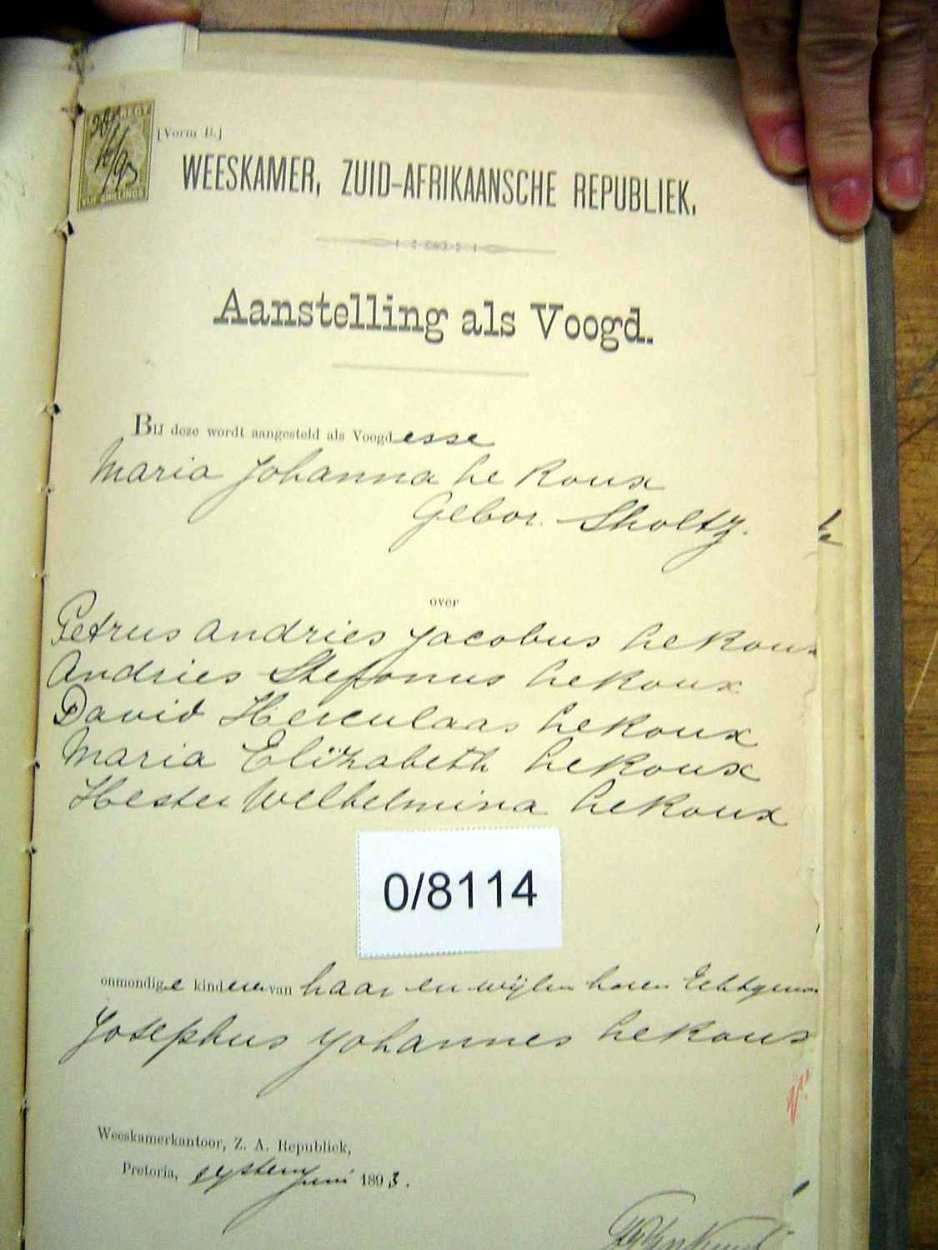 [Vorm B.]
WEESKAMER, ZUID-AFRIKAANSCHE REPUBLIEK.
Aanstelling als Voogd.
Bij deze wordt aangesteld als Voogdesse
Maria Johanna le Roux
Gebor. Sholtz.
over
Petrus Andries Jacobus le Roux
Andries Stefanus le Roux
David Herculaas le Roux
Maria Elizabeth le Roux
Hester Welhelmina le Roux
0/8114
onmondige kinderen van haar en wijlen haren
Josephus Johannes le Roux
Weeskamerkantoor, Z. A. Republiek,
Pretoria, Juni 1893.